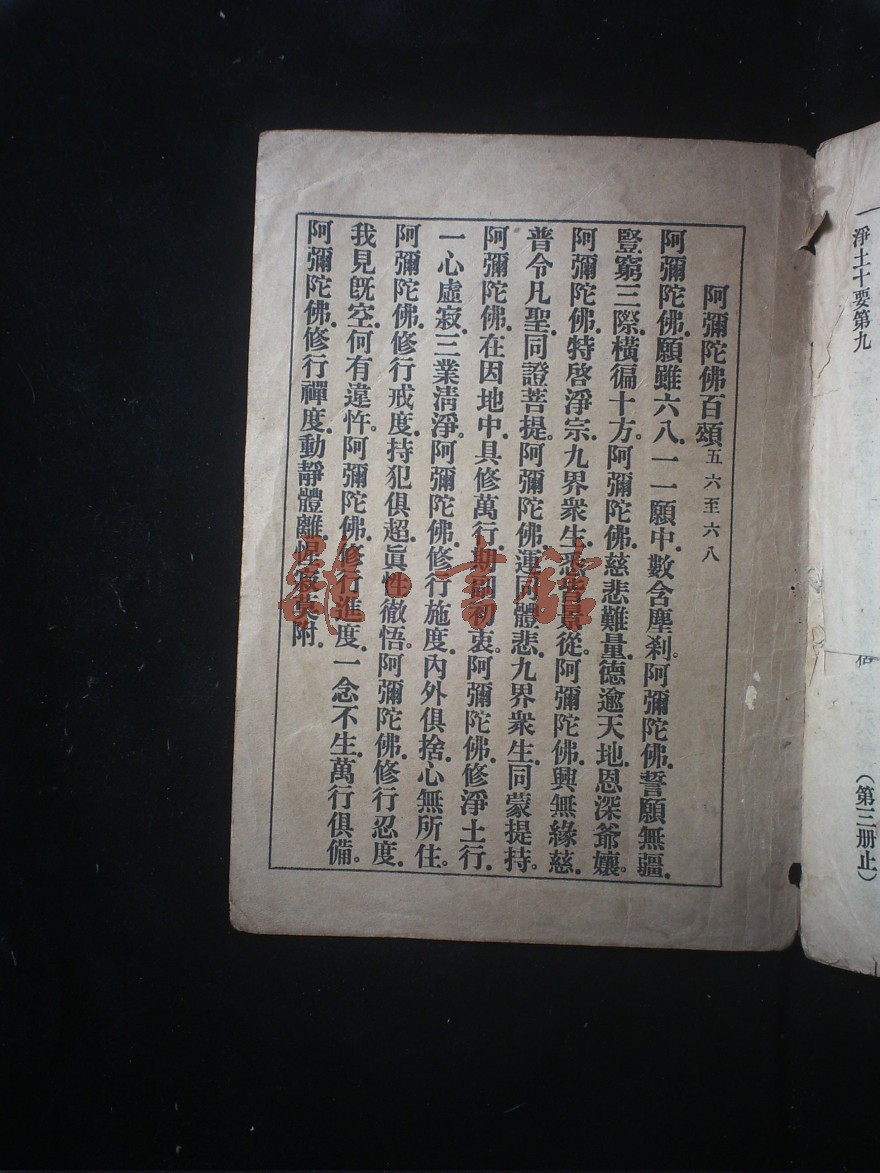 淨土十要第九
（第三册止）
阿彌陀佛百頌五六至六八
阿彌陀佛．願雖六八．一一願中．數含塵刹。阿彌陀佛．誓願無疆．
豎窮三際．橫徧十方。阿彌陀佛．慈悲難量．德逾天地．恩深爺孃。
阿彌陀佛．特啓淨宗．九界衆生．悉皆景從。阿彌陀佛．興無緣慈．
普令凡聖．同證菩提。阿彌陀佛．運同體悲．九界衆生．同蒙提持。
阿彌陀佛．在因地中．具修萬行．期圓初衷。阿彌陀佛．修淨土行．
一心虛寂．三業淸淨。阿彌陀佛．修行施度．內外俱捨．心無所住。
阿彌陀佛．修行戒度．持犯俱超．眞性徹悟。阿彌陀佛．修行忍度．
我見旣空．何有違忤。阿彌陀佛．修行進度．一念不生．萬行俱備。
阿彌陀佛．修行禪度．動靜體離．惺寂莫附．
雜·書館